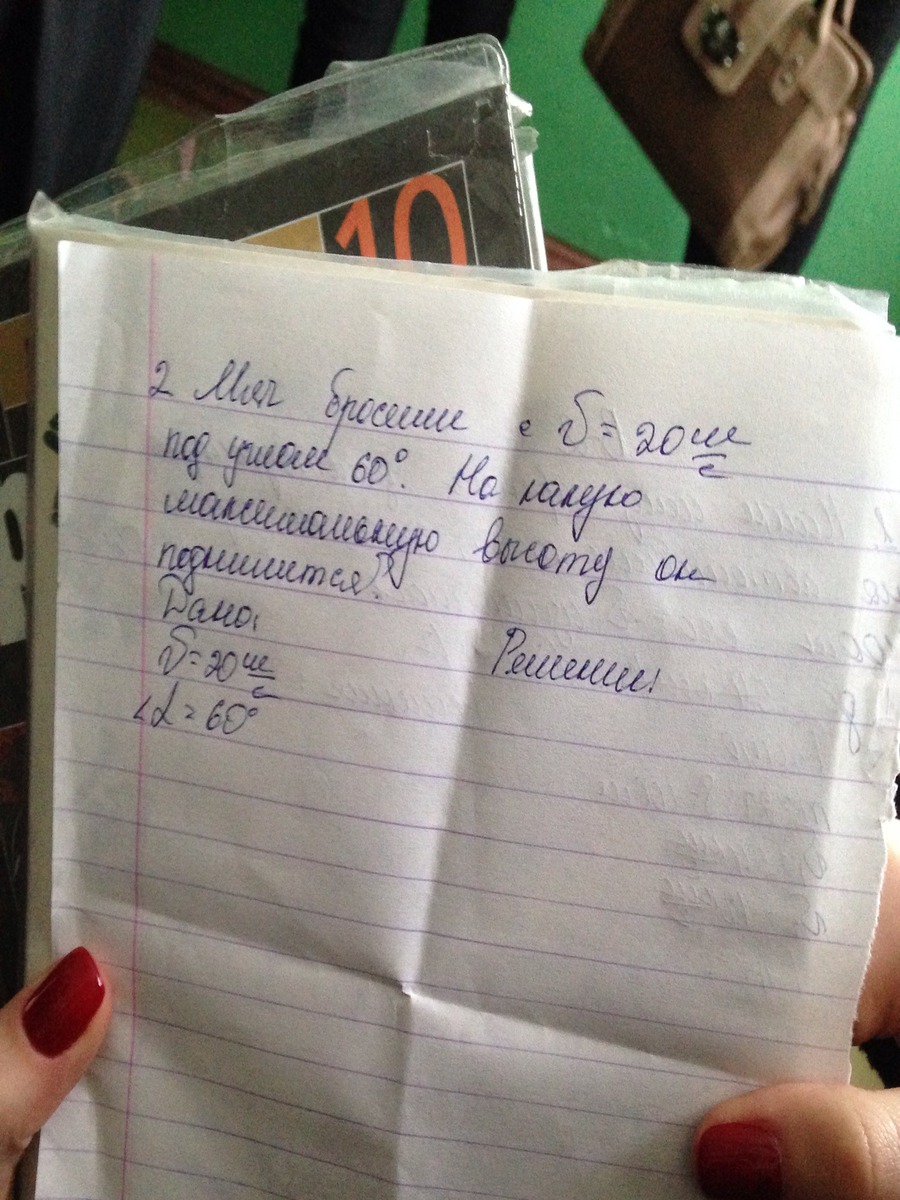 10
2 Мяч бросили с V = 20 м/с
под углом 60°. На какую
максимальную высоту он
поднимится?
Дано:
V = 20 м/с
Решение:
<α = 60°